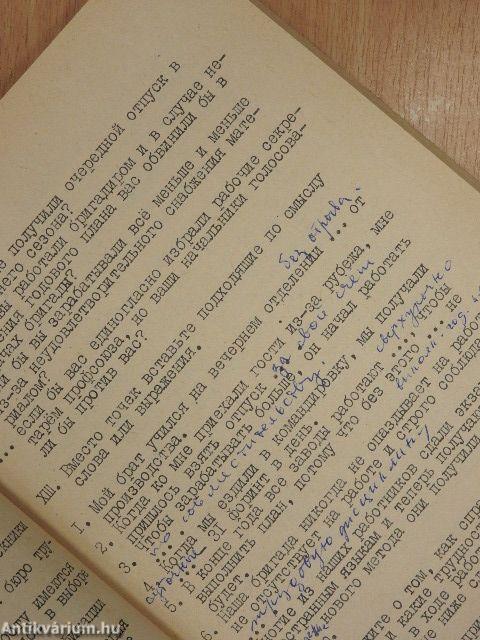 получили очередной отпуск в
сезона?
работали бригадиром и в случае не-
годового плана вас обвинили бы в
бригады?
бы вы зарабатывали всё меньше и меньше
из-за неудовлетворительного снабжения мате-
риалом?
... если бы вас единогласно избрали рабочие секре-
тарём профсоюза, но ваши начальники голосова-
ли бы против вас?
XIII. Вместо точек вставьте подходящие по смыслу
слова или выражения.
без отрыва
1. Мой брат учился на вечернем отделении ... от
производства.
2. Когда ко мне приехали гости из-за рубежа, мне
за свой счет
пришлось взять отпуск ...
3. Чтобы зарабатывать больше, он начал работать
по совместительству
...
4. Когда мы ездили в командировку, мы получали
... 31 форинт в день.
сверхурочно
5. В конце года все заводы работают ..., чтобы
выполнить план, потому что без этого ... не
будет.
6. Наша бригада никогда не опаздывает на работу
не отсутствует на работе и строго соблюда
трудовую дисциплину
из наших работников сдали экза-
языкам и теперь получают
нового метода они получили
о том, как
какие трудно
в ходе рабо
ниже
бюро тру-
имеются
в выборе
Antikvárium.hu
antikvarium.hu